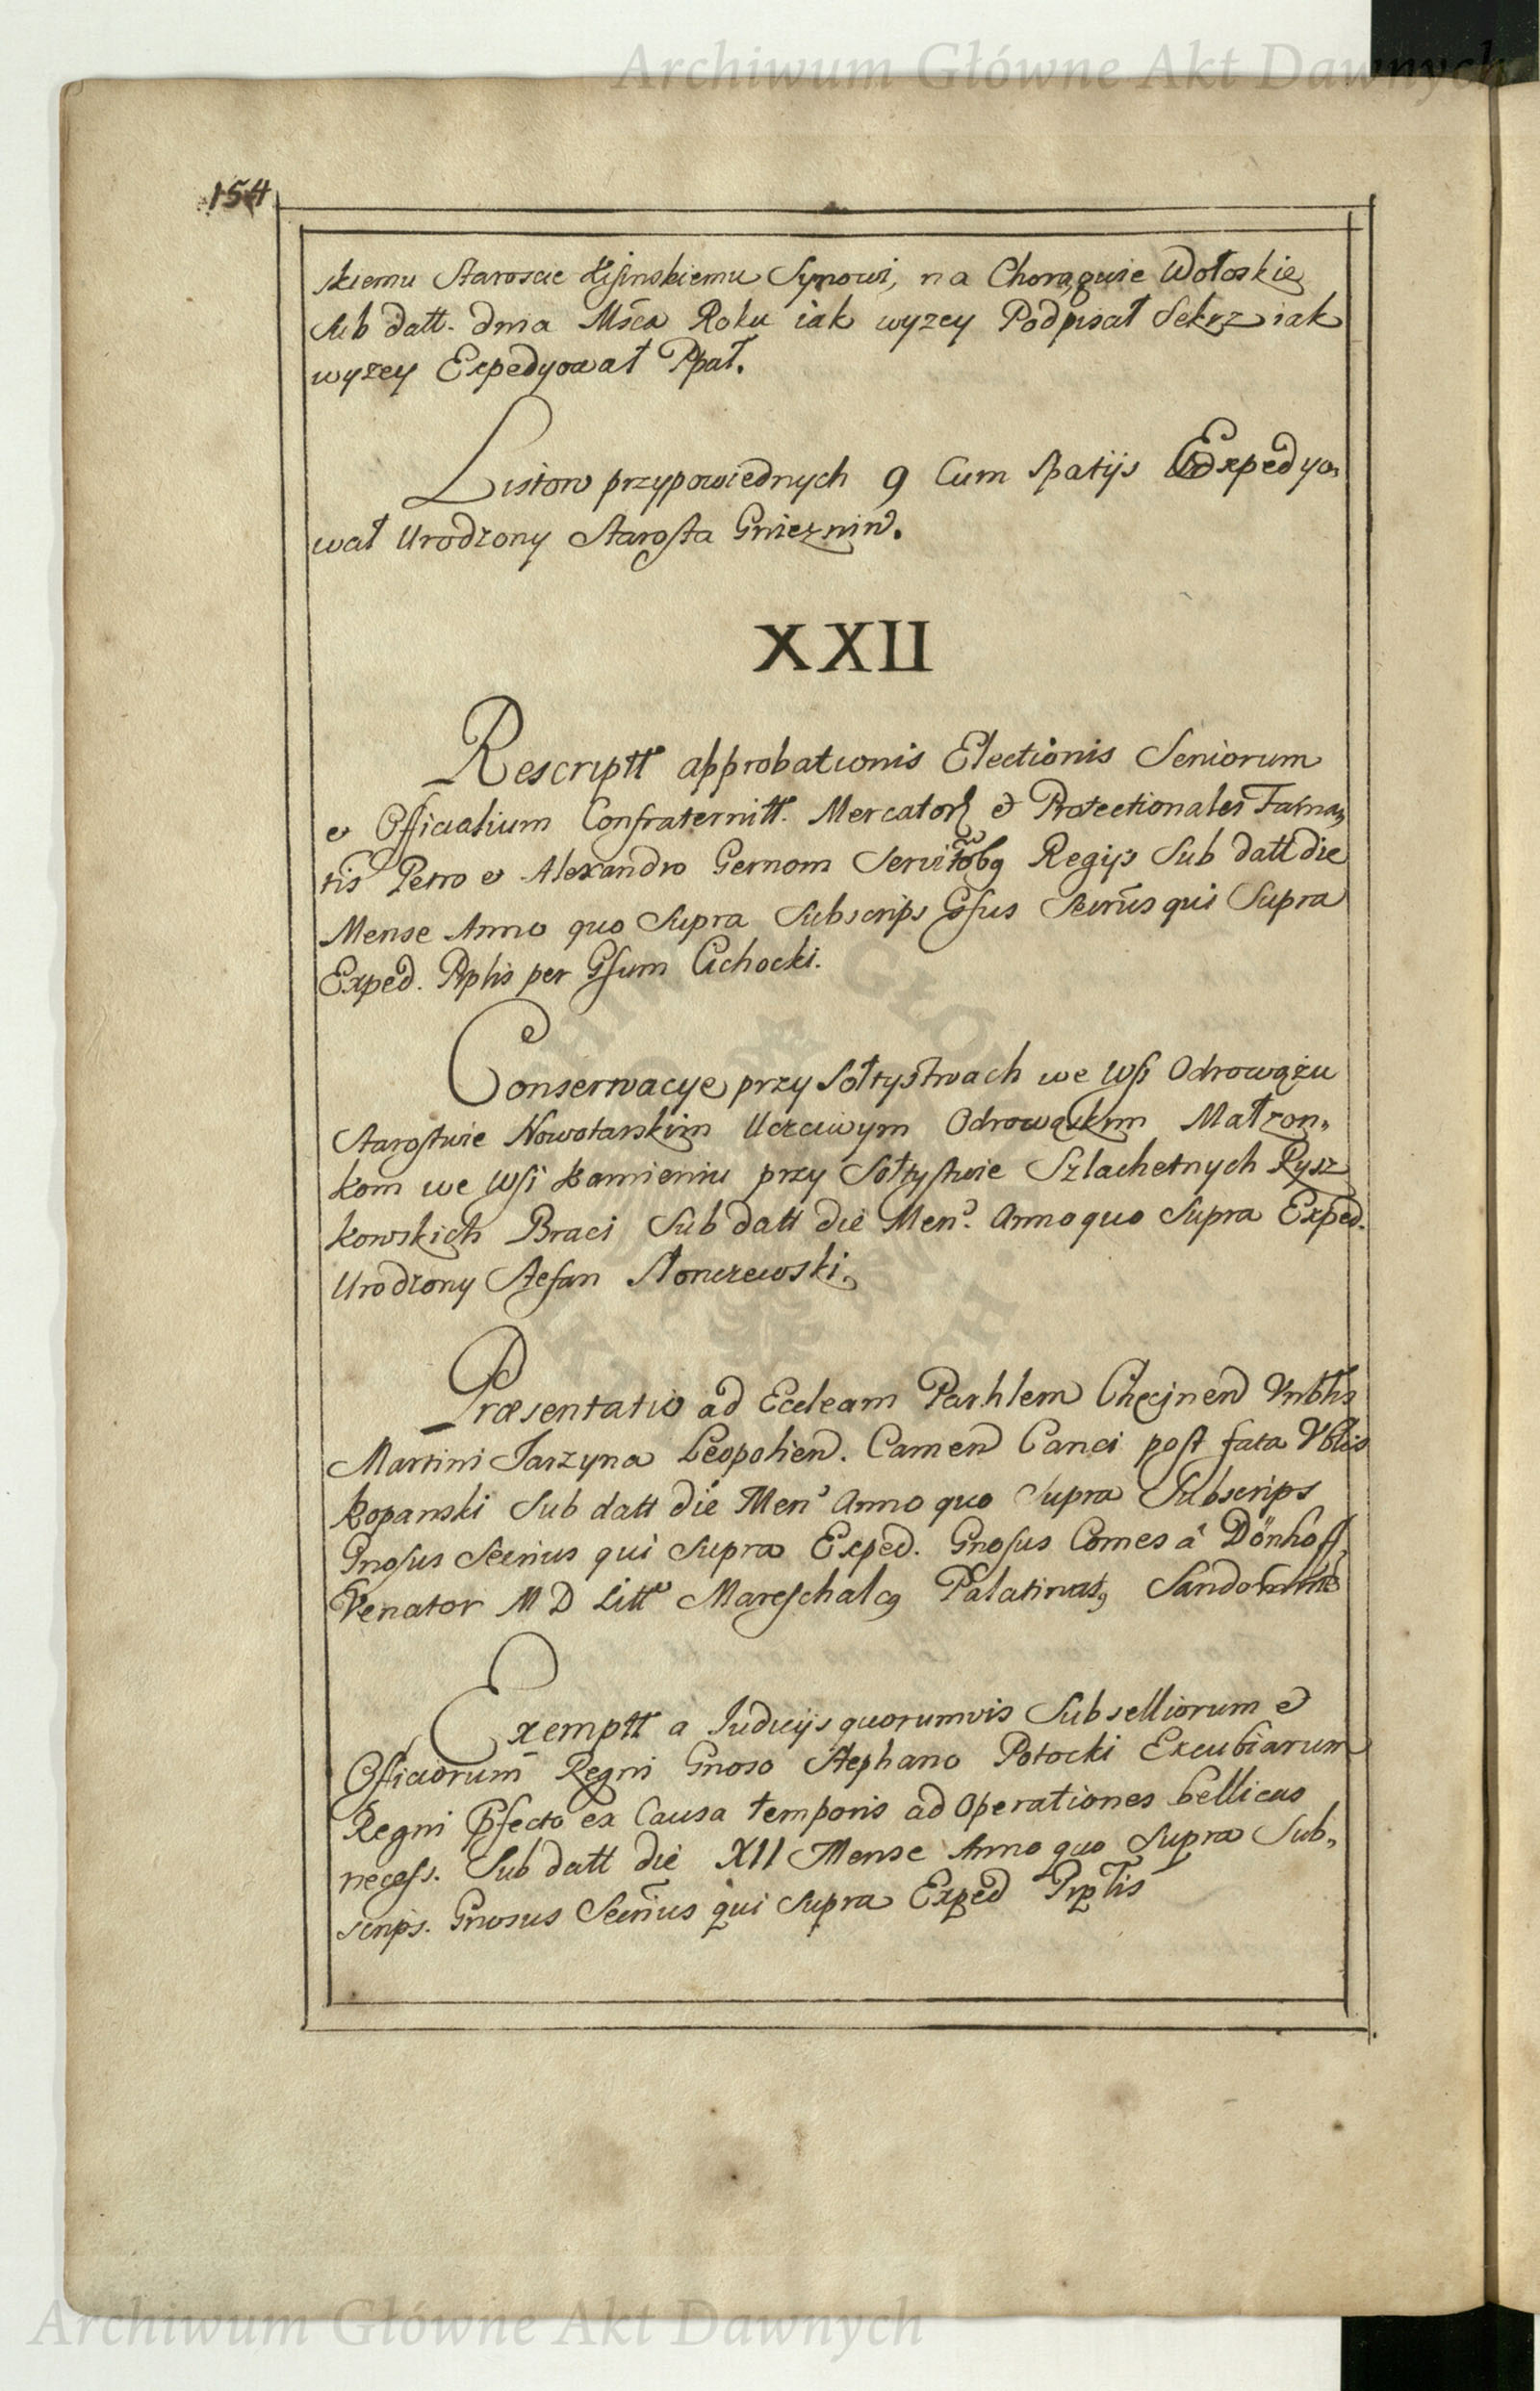 Archiwum Główne Akt Dawnych
154
skiemu Staroscie Synowi, na Chorągwie Wołoskie
Sub datt. dnia Mśca Roku iak wyzey Podpisał Sekrz iak
wyzey Expedyował Ppał.
Listow przypowiednych 9 Cum Spatijs Expedyo„
wał Urodzony Starosta Gnieznin.
XXII
Rescriptt approbationis Electionis Seniorum
et Officialium Confraternitt. Mercator et Protectionales Fama„
tis Petro et Alexandro Gernom Servitobq Regijs Sub datt die
Mense Anno quo Supra Subscrips Gsus Secrius qui Supra
Exped. Pplis per Gsum Cichocki.
Conserwacye przy Sołtystwach we Wsi Odrowążu
Starostwie Nowotarskim Uczciwym Odrowąskim Małzon„
kom we Wsi Kamieniu przy Sołtystwie Szlachetnych Rysz
kowskich Braci Sub datt die Men. Anno quo Supra Exped.
Urodzony Stefan Słonczewski.
Præsentatio ad Eccleam Parhlem Chęcinen Vnblis
Martini Jarzyna Leopolien. Camen Canci post fata Vblis
Kopanski Sub datt die Men Anno quo Supra Subscrips
Gnosus Secrius qui Supra Exped. Gnosus Comes â Dönhoff
Venator M D Litt Mareschalcq Palatinatq
Exemptt a Iudicijs quorumvis Subselliorum et
Officiorum Regni Gnoso Stephano Potocki Excubiarum
Regni Pfecto ex Causa temporis ad Operationes bellicas
necess. Sub datt die XII Mense Anno quo Supra Sub„
scrips. Gnosus Secrius qui Supra Exped Prplis
Archiwum Główne Akt Dawnych